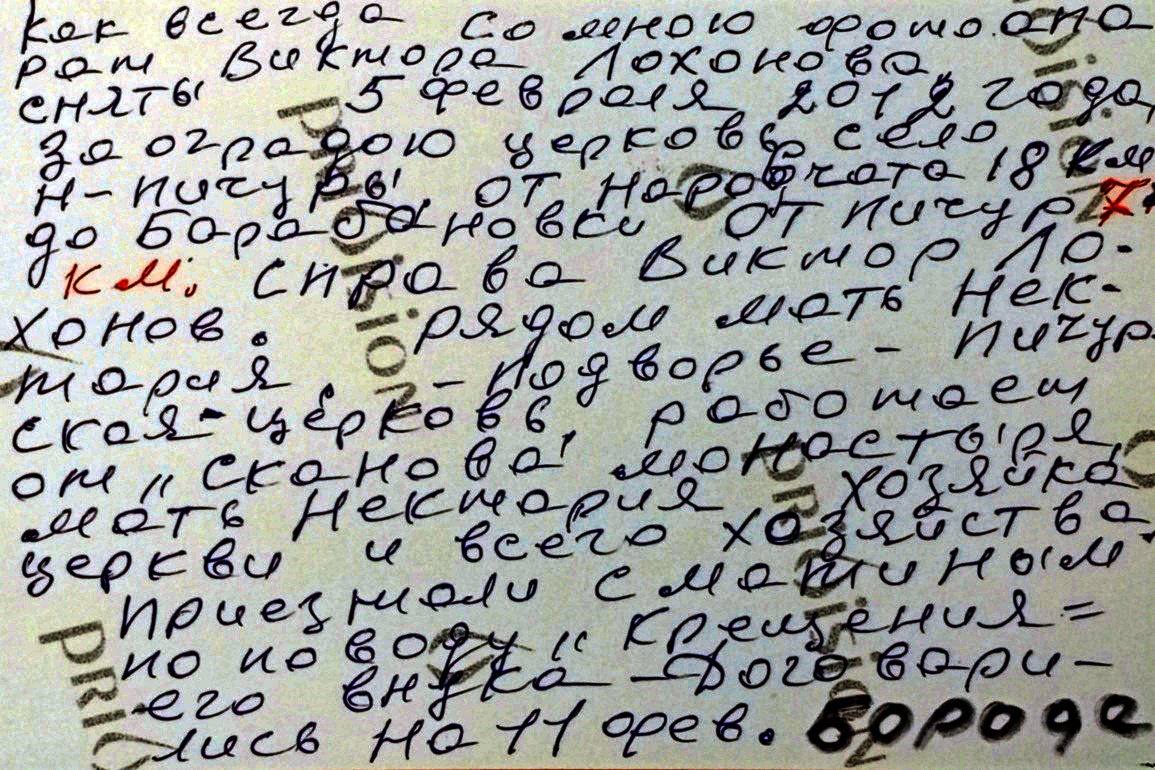 как всегда со мною фотоапа
рат Виктора Лохонова,
сняты 5 февраля 2012 года,
за оградою церковь село
Н-Пичуры от Наровчата 18 км
до Барабановки от Пичур 7
км. справа Виктор Ло-
хонов. рядом мать Нек-
тария. - подворье - Пичур
ская - церковь, работает
от „Сканова" монастыря,
мать Нектария хозяйка
церкви и всего хозяйства
приезжали с
по поводу „крещения =
его внука - Договари-
лись на 11 фев. Бороде